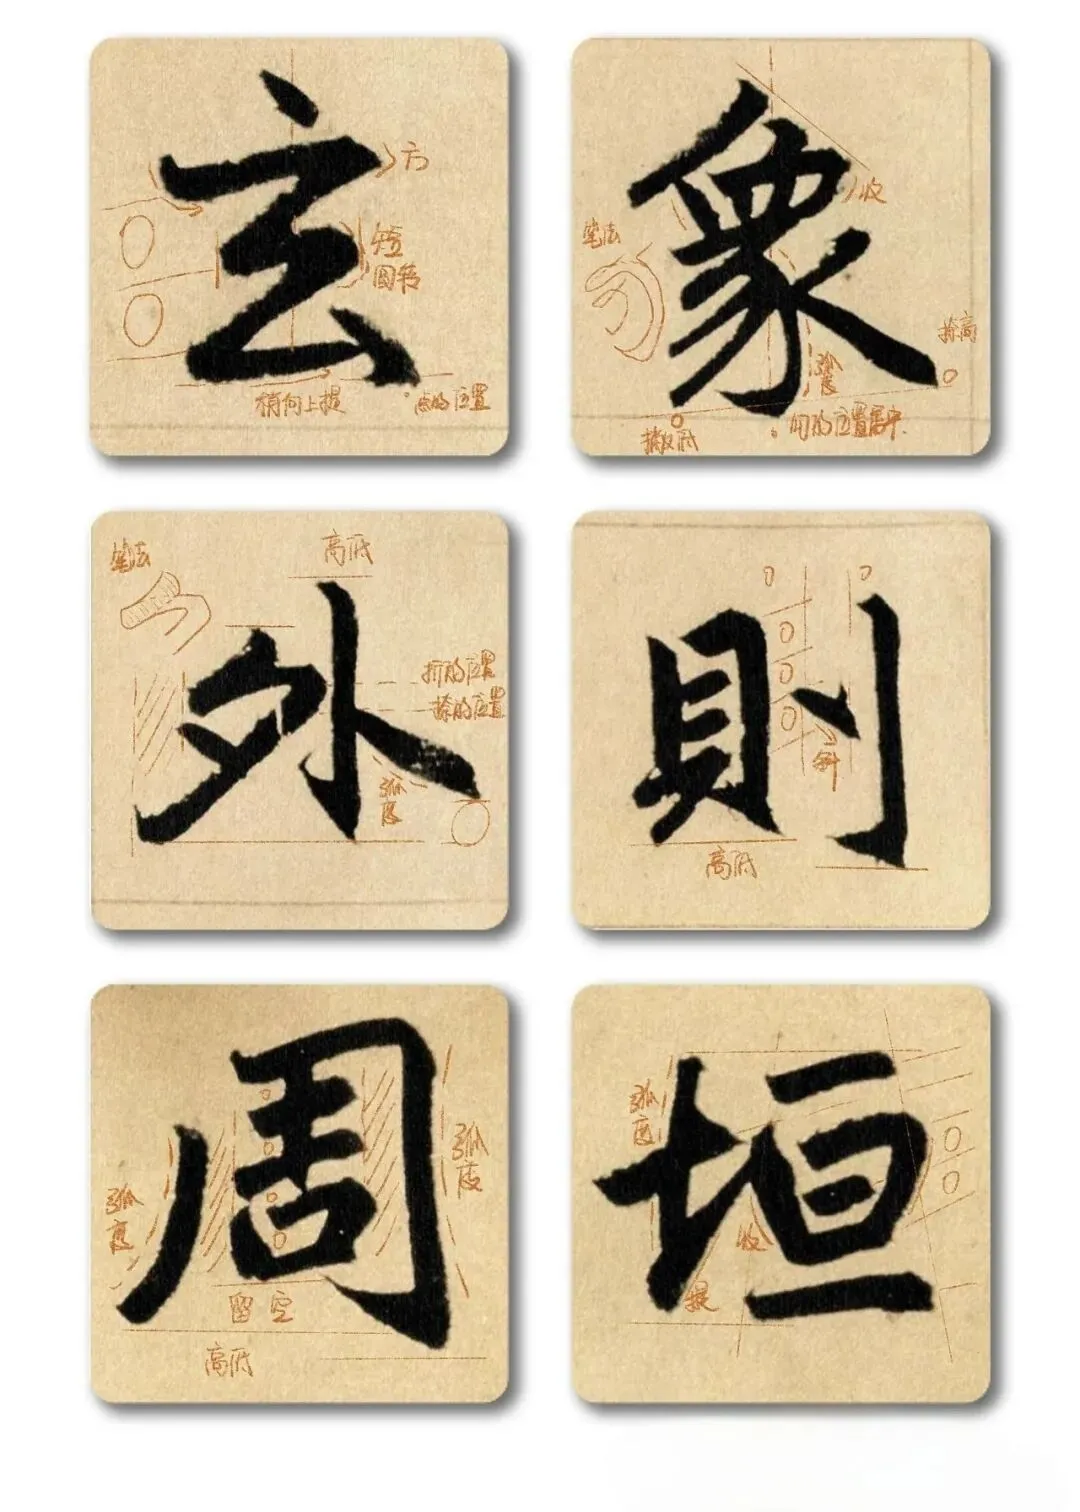 玄
方
短
圆转
稍向上提
点的位置
象
收
笔法
捺高
弧度
勾的位置居中
撇低
外
笔法
高低
折的位置
捺的位置
弧度
則
斜
高低
周
弧度
弧度
留空
高低
垣
弧度
收
提